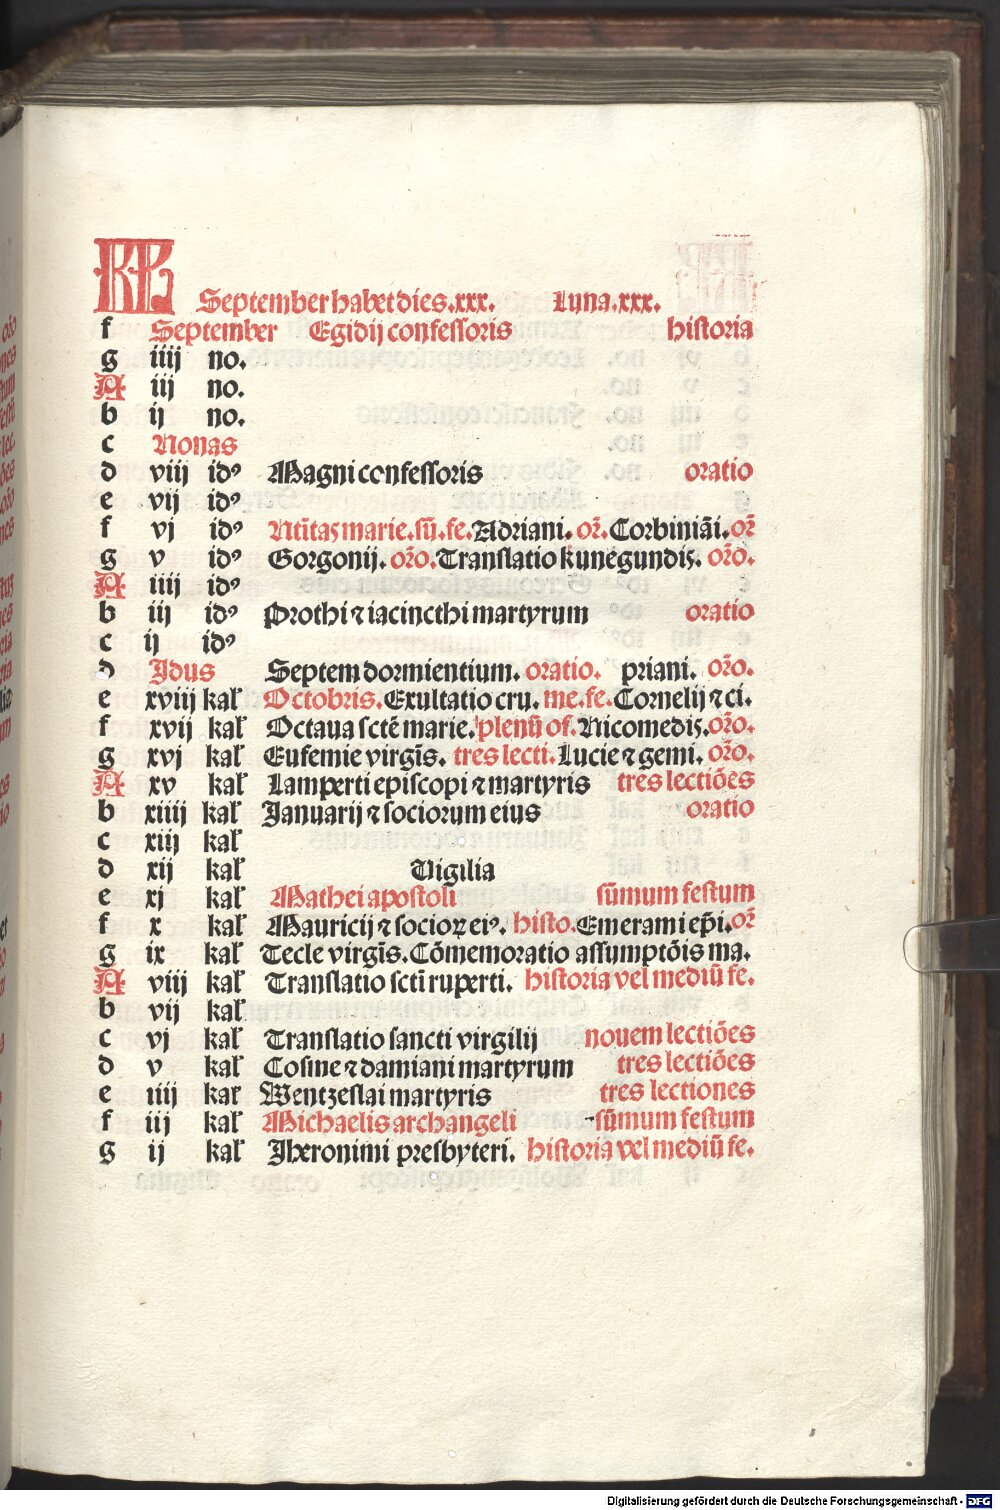 KL September habet dies.xxx. Luna.xxx.
f September Egidij confessoris historia
g iiij no.
A iij no.
b ij no.
c Nonas
d viij idꝰ Magni confessoris oratio
e vij idꝰ
f vj idꝰ Nt̄itas marie.sū.fe. Adriani. or̄. Corbiniāi. or̄
g v idꝰ Gorgonij. or̄o. Translatio kunegundis. or̄o.
A iiij idꝰ
b iij idꝰ Prothi ⁊ iacincthi martyrum oratio
c ij idꝰ
d Idus Septem dormientium. oratio. priani. or̄o.
e xviij kal' Octobris. Exultatio cru. me.fe. Cornelij ⁊ ci.
f xvij kal' Octaua sctē marie. plenū of. Nicomedis. or̄o.
g xvj kal' Eufemie virgīs. tres lecti. Lucie ⁊ gemi. or̄o.
A xv kal' Lamperti episcopi ⁊ martyris tres lectiōes
b xiiij kal' Januarij ⁊ sociorum eius oratio
c xiij kal'
d xij kal' Vigilia
e xj kal' Mathei apostoli sūmum festum
f x kal' Mauricij ⁊ socioꝝ eiꝰ. histo. Emerami ep̄i. or̄
g ix kal' Tecle virgīs. Cōmemoratio assumptōis ma.
A viij kal' Translatio sctī ruperti. historia vel mediū fe.
b vij kal'
c vj kal' Translatio sancti virgilij nouem lectiōes
d v kal' Cosme ⁊ damiani martyrum tres lectiōes
e iiij kal' Wentzeslai martyris tres lectiones
f iij kal' Michaelis archangeli sūmum festum
g ij kal' Jheronimi presbyteri. historia vel mediū fe.
Digitalisierung gefördert durch die Deutsche Forschungsgemeinschaft - DFG